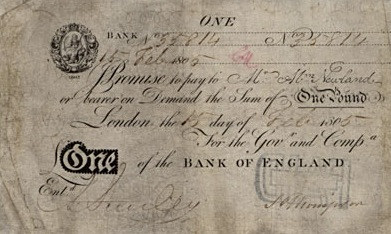 ONE
BANK No 35814 No 35814
15 Feb 1805
Promise to pay to Mr. Abm. Newland
or bearer on Demand the Sum of One Pound
London the 15 day of Feb 1805
For the Govr. and Compa.
One of the BANK OF ENGLAND
Entd.